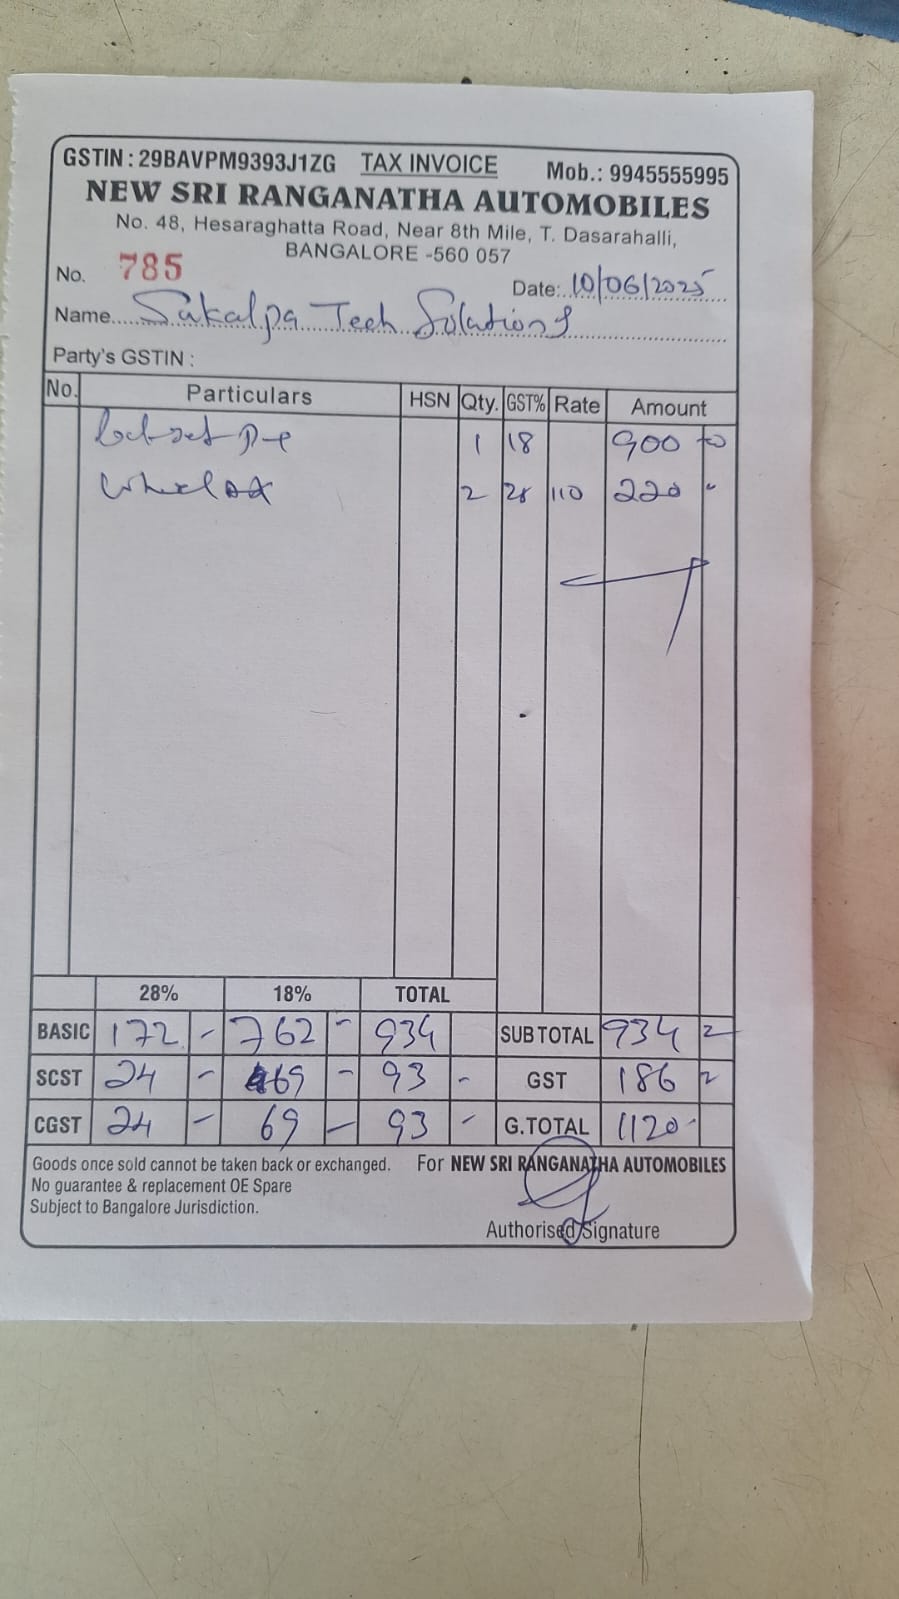 GSTIN : 29BAVPM9393J1ZG TAX INVOICE Mob.: 9945555995
NEW SRI RANGANATHA AUTOMOBILES
No. 48, Hesaraghatta Road, Near 8th Mile, T. Dasarahalli,
BANGALORE -560 057
No. 785 Date: 10/06/2025
Name Sakalpa Tech Solutions
Party's GSTIN :
No. Particulars HSN Qty. GST% Rate Amount
1 18 900
2 28 110 220
28% 18% TOTAL
BASIC 172 - 762 - 934 SUB TOTAL 934
SCST 24 - 69 - 93 - GST 186
CGST 24 - 69 - 93 - G.TOTAL 1120-
Goods once sold cannot be taken back or exchanged. For NEW SRI RANGANATHA AUTOMOBILES
No guarantee & replacement OE Spare
Subject to Bangalore Jurisdiction.
Authorised Signature